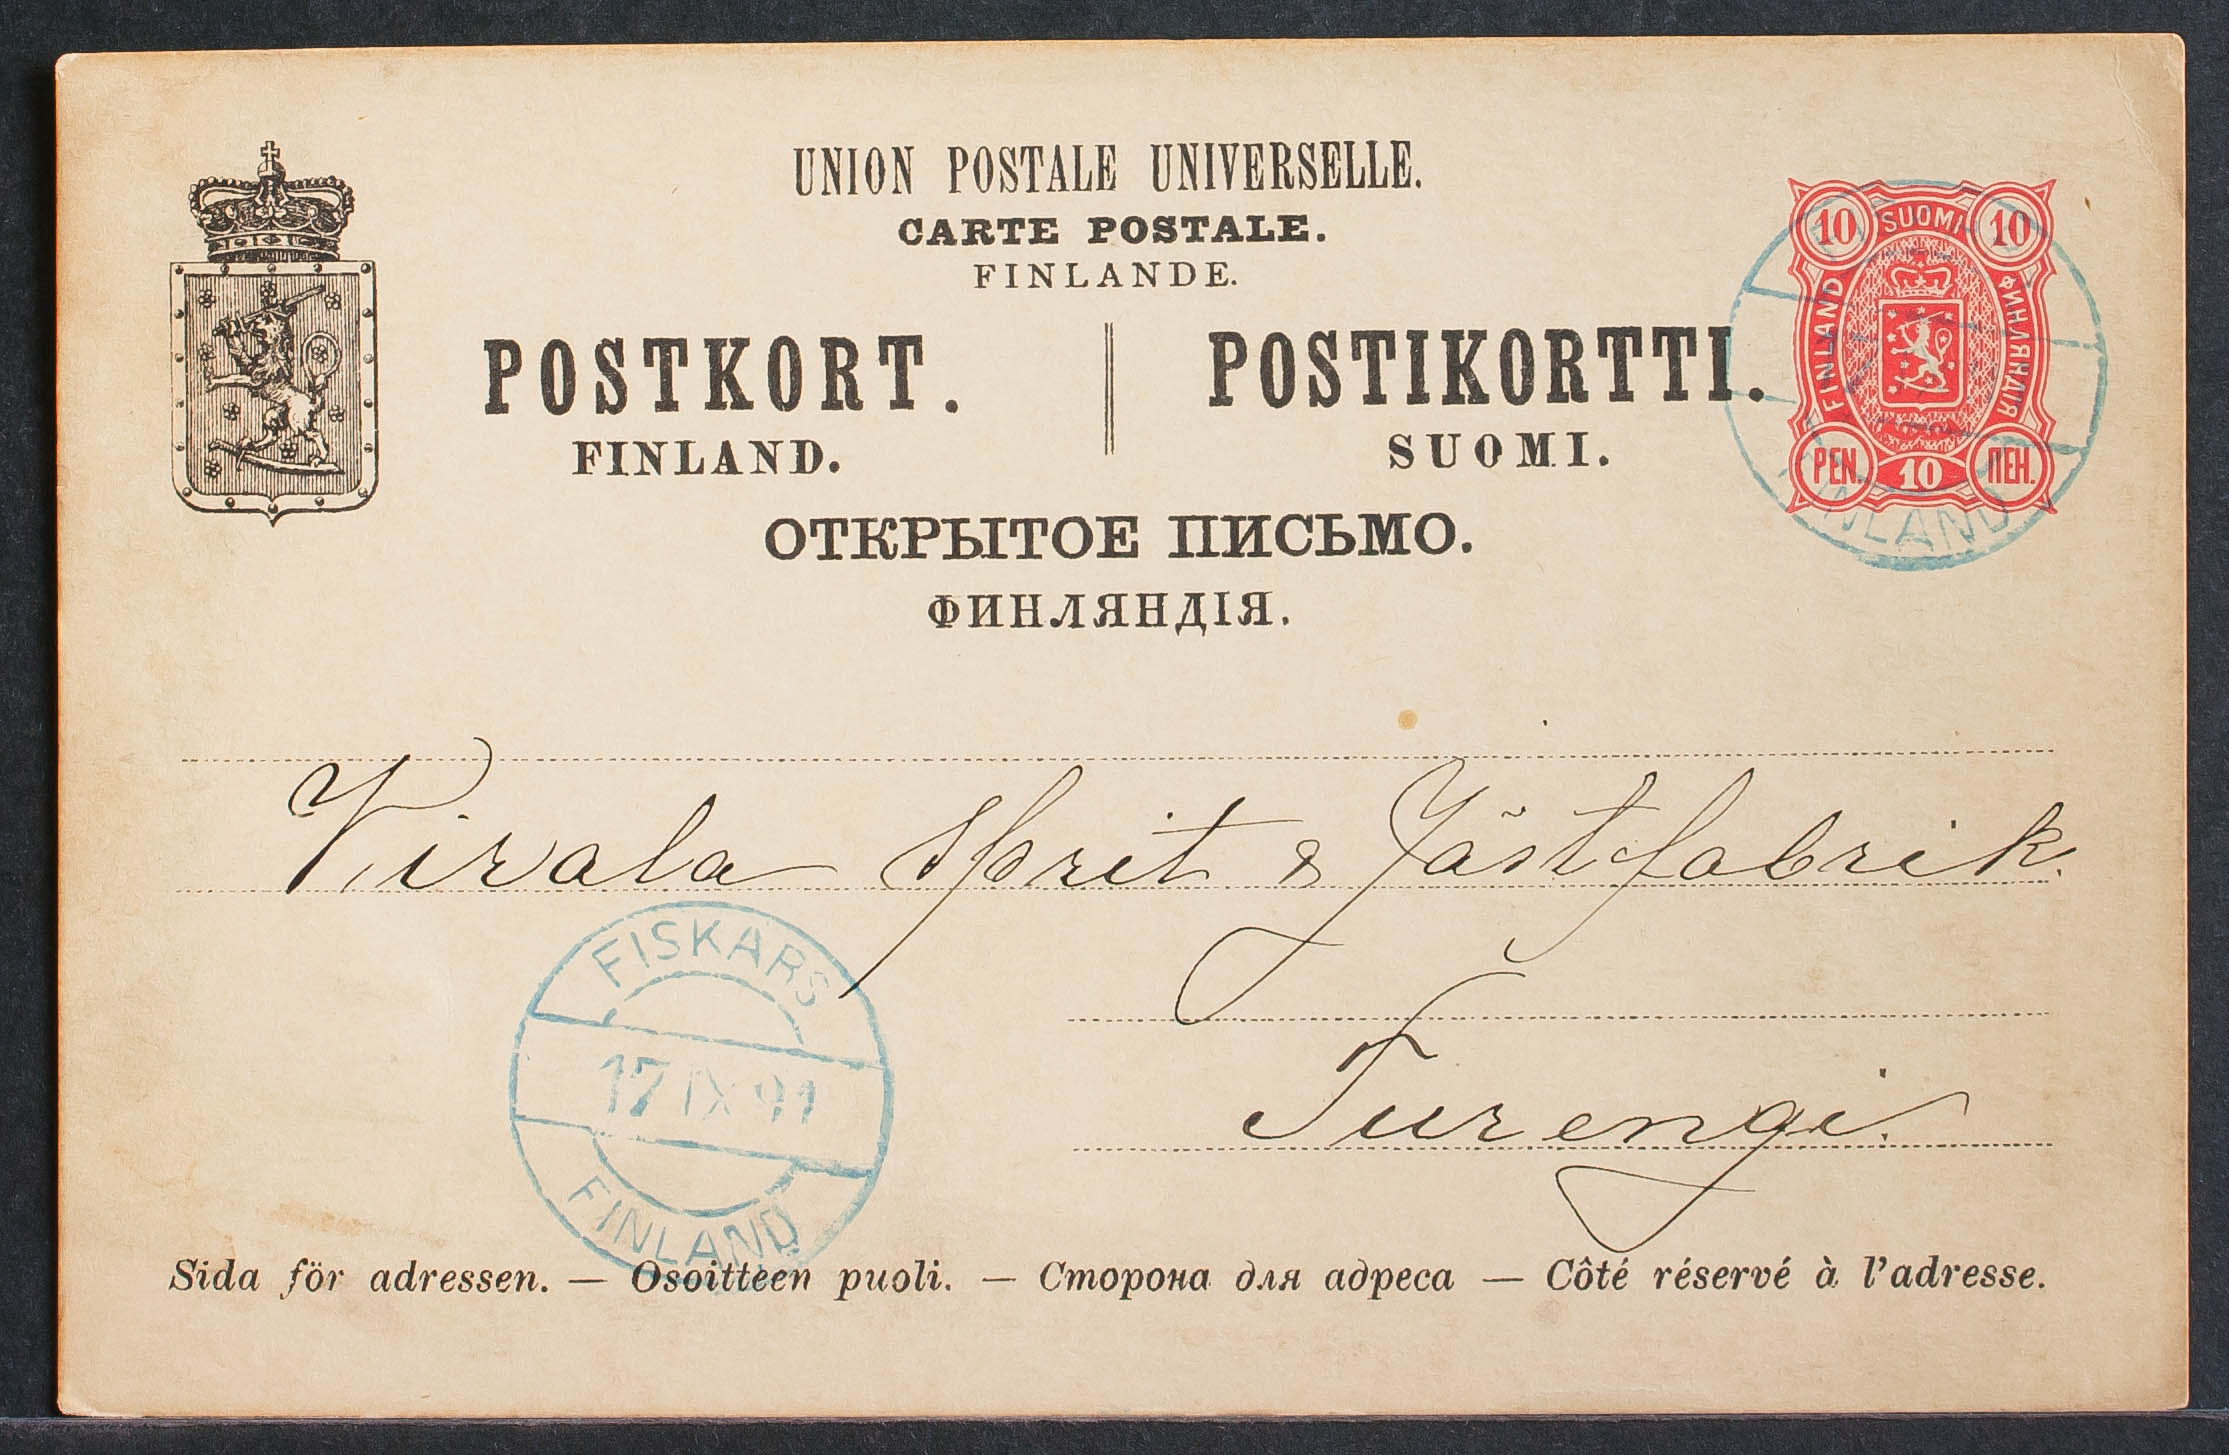 UNION POSTALE UNIVERSELLE.
CARTE POSTALE.
FINLANDE.
POSTKORT. POSTIKORTTI.
FINLAND. SUOMI.
ОТКРЫТОЕ ПИСЬМО.
ФИНЛЯНДІЯ.
10 SUOMI 10
FINLAND ФИНЛЯНДІЯ
PEN. 10 ПЕН.
FINLAND
Virala Sprit & Jästfabrik.
Turengi.
FISKARS
17 IX 91
FINLAND
Sida för adressen. — Osoitteen puoli. — Сторона для адреса — Côté réservé à l'adresse.